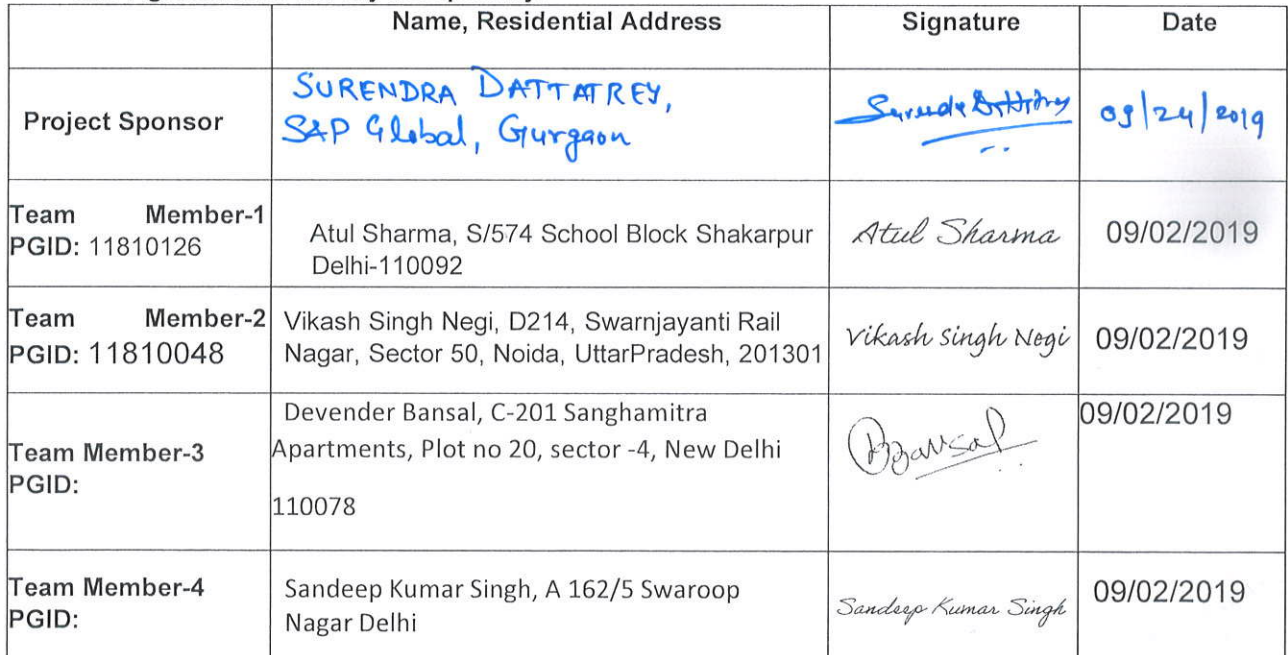 Name, Residential Address Signature Date
Project Sponsor
SURENDRA DATTATREY,
SAP Global, Gurgaon
09/24/2019
Team Member-1
PGID: 11810126
Atul Sharma, S/574 School Block Shakarpur
Delhi-110092
Atul Sharma
09/02/2019
Team Member-2
PGID: 11810048
Vikash Singh Negi, D214, Swarnjayanti Rail
Nagar, Sector 50, Noida, UttarPradesh, 201301
Vikash Singh Negi
09/02/2019
Team Member-3
PGID:
Devender Bansal, C-201 Sanghamitra
Apartments, Plot no 20, sector -4, New Delhi
110078
Bansal
09/02/2019
Team Member-4
PGID:
Sandeep Kumar Singh, A 162/5 Swaroop
Nagar Delhi
Sandeep Kumar Singh
09/02/2019